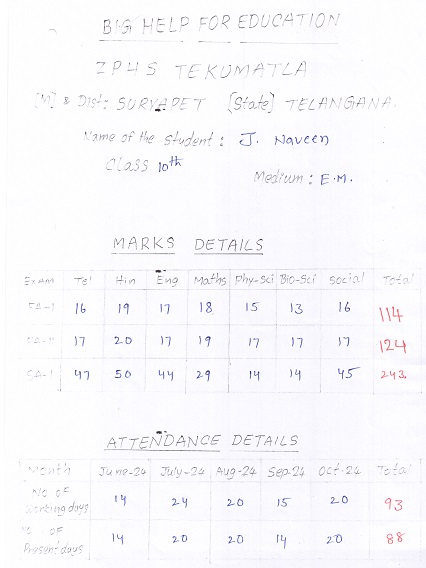 BIG HELP FOR EDUCATION
ZPHS TEKUMATLA
[M] & Dist: SURYAPET [State] TELANGANA.
Name of the Student: J. Naveen
Class 10th
Medium: E.M.
MARKS DETAILS
Exam Tel Hin Eng Maths Phy-Sci Bio-Sci Social Total
FA-1 16 19 17 18 15 13 16 114
17 20 17 19 17 17 17 124
SA-1 47 50 44 29 14 14 45 243
ATTENDANCE DETAILS
Month June-24 July-24 Aug-24 Sep-24 Oct-24 Total
No. of Working days 14 24 20 15 20 93
No. of Present days 14 20 20 14 20 88